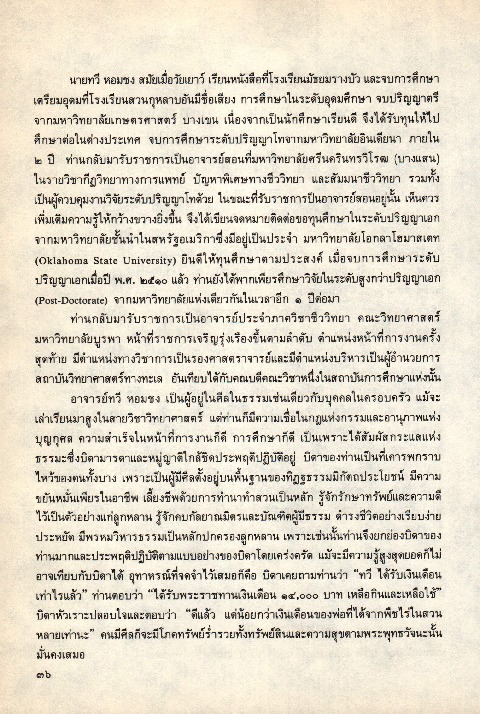 นายทวี หอมชง สมัยเมื่อวัยเยาว์ เรียนหนังสือที่โรงเรียนมัธยมรางบัว และจบการศึกษา
เตรียมอุดมที่โรงเรียนสวนกุหลาบอันมีชื่อเสียง การศึกษาในระดับอุดมศึกษา จบปริญญาตรี
จากมหาวิทยาลัยเกษตรศาสตร์ บางเขน เนื่องจากเป็นนักศึกษาเรียนดี จึงได้รับทุนให้ไป
ศึกษาต่อในต่างประเทศ จบการศึกษาระดับปริญญาโทจากมหาวิทยาลัยอินเดียนา ภายใน
๒ ปี ท่านกลับมารับราชการเป็นอาจารย์สอนที่มหาวิทยาลัยศรีนครินทรวิโรฒ (บางแสน)
ในรายวิชากีฏวิทยาทางการแพทย์ ปัญหาพิเศษทางชีววิทยา และสัมมนาชีววิทยา รวมทั้ง
เป็นผู้ควบคุมงานวิจัยระดับปริญญาโทด้วย ในขณะที่รับราชการป็นอาจารย์สอนอยู่นั้น เห็นควร
เพิ่มเติมความรู้ให้กว้างขวางยิ่งขึ้น จึงได้เขียนจดหมายติดต่อขอทุนศึกษาในระดับปริญญาเอก
จากมหาวิทยาลัยชั้นนำในสหรัฐอเมริกาซึ่งมีอยู่เป็นประจำ มหาวิทยาลัยโอกลาโฮมาสเตท
(Oklahoma State University) ยินดีให้ทุนศึกษาตามประสงค์ เมื่อจบการศึกษาระดับ
ปริญญาเอกเมื่อปี พ.ศ. ๒๕๑๐ แล้ว ท่านยังได้พากเพียรศึกษาวิจัยในระดับสูงกว่าปริญญาเอก
(Post-Doctorate) จากมหาวิทยาลัยแห่งเดียวกันในเวลาอีก ๑ ปีต่อมา
ท่านกลับมารับราชการเป็นอาจารย์ประจำภาควิชาชีววิทยา คณะวิทยาศาสตร์
มหาวิทยาลัยบูรพา หน้าที่ราชการเจริญรุ่งเรืองขึ้นตามลำดับ ตำแหน่งหน้าที่การงานครั้ง
สุดท้าย มีตำแหน่งทางวิชาการเป็นรองศาสตราจารย์และมีตำแหน่งบริหารเป็นผู้อำนวยการ
สถาบันวิทยาศาสตร์ทางทะเล อันเทียบได้กับคณบดีคณะวิชาหนึ่งในสถาบันการศึกษาแห่งนั้น
อาจารย์ทวี หอมชง เป็นผู้อยู่ในศีลในธรรมเช่นเดียวกับบุคคลในครอบครัว แม้จะ
เล่าเรียนมาสูงในสายวิชาวิทยาศาสตร์ แต่ท่านก็มีความเชื่อในกฎแห่งกรรมและอานุภาพแห่ง
บุญกุศล ความสำเร็จในหน้าที่การงานก็ดี การศึกษาก็ดี เป็นเพราะได้สัมผัสกระแสแห่ง
ธรรมะซึ่งบิดามารดาและหมู่ญาติใกล้ชิดประพฤติปฏิบัติอยู่ บิดาของท่านเป็นที่เคารพกราบ
ไหว้ของคนทั้งบาง เพราะเป็นผู้มีศีลตั้งอยู่บนพื้นฐานของทิฏฐธรรมมิกัตถประโยชน์ มีความ
ขยันหมั่นเพียรในอาชีพ เลี้ยงชีพด้วยการทำนาทำสวนเป็นหลัก รู้จักรักษาทรัพย์และความดี
ไว้เป็นตัวอย่างแก่ลูกหลาน รู้จักคบกัลยาณมิตรและบัณฑิตผู้มีธรรม ดำรงชีวิตอย่างเรียบง่าย
ประหยัด มีพรหมวิหารธรรมเป็นหลักปกครองลูกหลาน เพราะเช่นนั้นท่านจึงยกย่องบิดาของ
ท่านมากและประพฤติปฏิบัติตามแบบอย่างของบิดาโดยเคร่งครัด แม้จะมีความรู้สูงสุดยอดก็ไม่
อาจเทียบกับบิดาได้ อุทาหรณ์ที่จดจำไว้เสมอก็คือ บิดาเคยถามท่านว่า “ทวี ได้รับเงินเดือน
เท่าไรแล้ว” ท่านตอบว่า “ได้รับพระราชทานเงินเดือน ๑๔,๐๐๐ บาท เหลือกินและเหลือใช้”
บิดาหัวเราะปลอบใจและตอบว่า “ดีแล้ว แต่น้อยกว่าเงินเดือนของพ่อที่ได้จากพืชไร่ในสวน
หลายเท่านะ” คนมีศีลก็จะมีโภคทรัพย์ร่ำรวยทั้งทรัพย์สินและความสุขตามพระพุทธวัจนะนั้น
มั่นคงเสมอ
๓๖